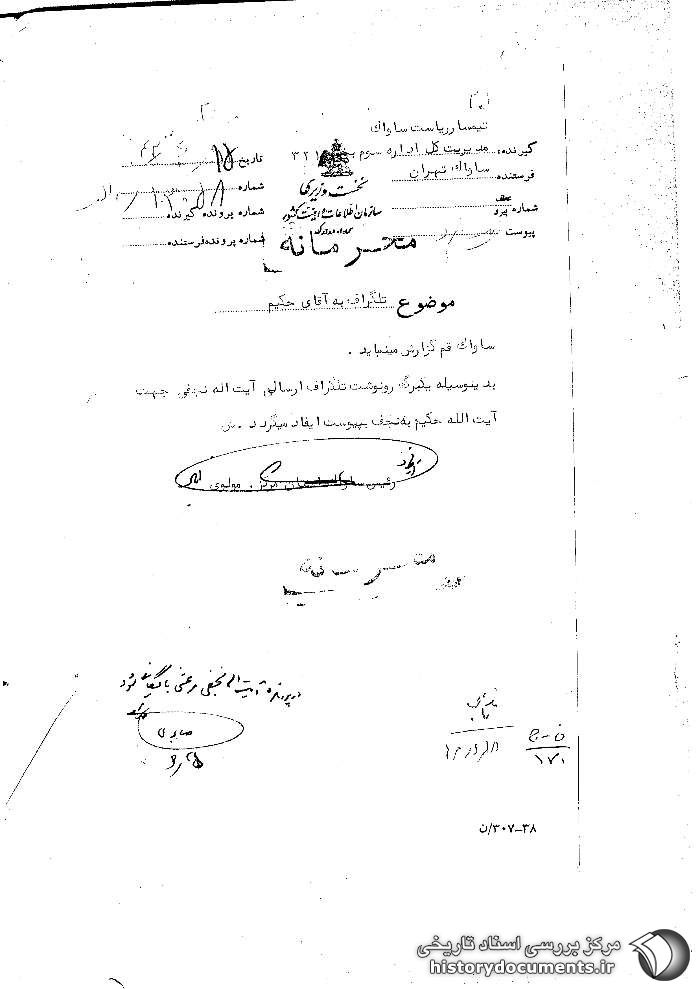 تیمسار ریاست ساواک
گیرنده: مدیریت کل اداره سوم ۳۲۱
فرستنده: ساواک تهران
نخست وزیری
سازمان اطلاعات و امنیت کشور
تاریخ
شماره
شماره پرونده گیرنده
شماره پرونده فرستنده
شماره پیرو
پیوست
محرمانه
موضوع تلگراف به آقای حکیم
ساواک قم گزارش مینماید .
بدینوسیله یکبرگ رونوشت تلگراف ارسالی آیت اله نجفی جهت
آیت الله حکیم به نجف بپیوست ایفاد میگردد . ش
رئیس ساواک استان مرکز . مولوی
محرمانه
در پرونده آیت اله نجفی مرعشی بایگانی شود
صابری
ف - ج
۱۷۰
۳۸-۳۰۷/ن
مرکز بررسی اسناد تاریخی
historydocuments.ir